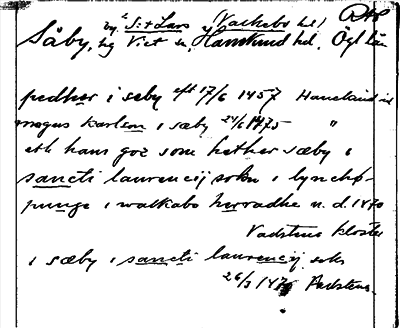 nu S:t Lars (Valkebo hd)
Såby, hg Vist sn, Hanekind hd, Ögl län
pedher i seby eft 17/6 1457 Hanekind
magnus karlson i sæby 24/6 1475 "
eth hans goz som hether sæby i
sancti laurencij sokn i lynchø-
punge i walkabo hærradhe n. d. 1470
Vadstena kloster
i sæby i sancti laurencij sokn
26/3 147 Vadstena